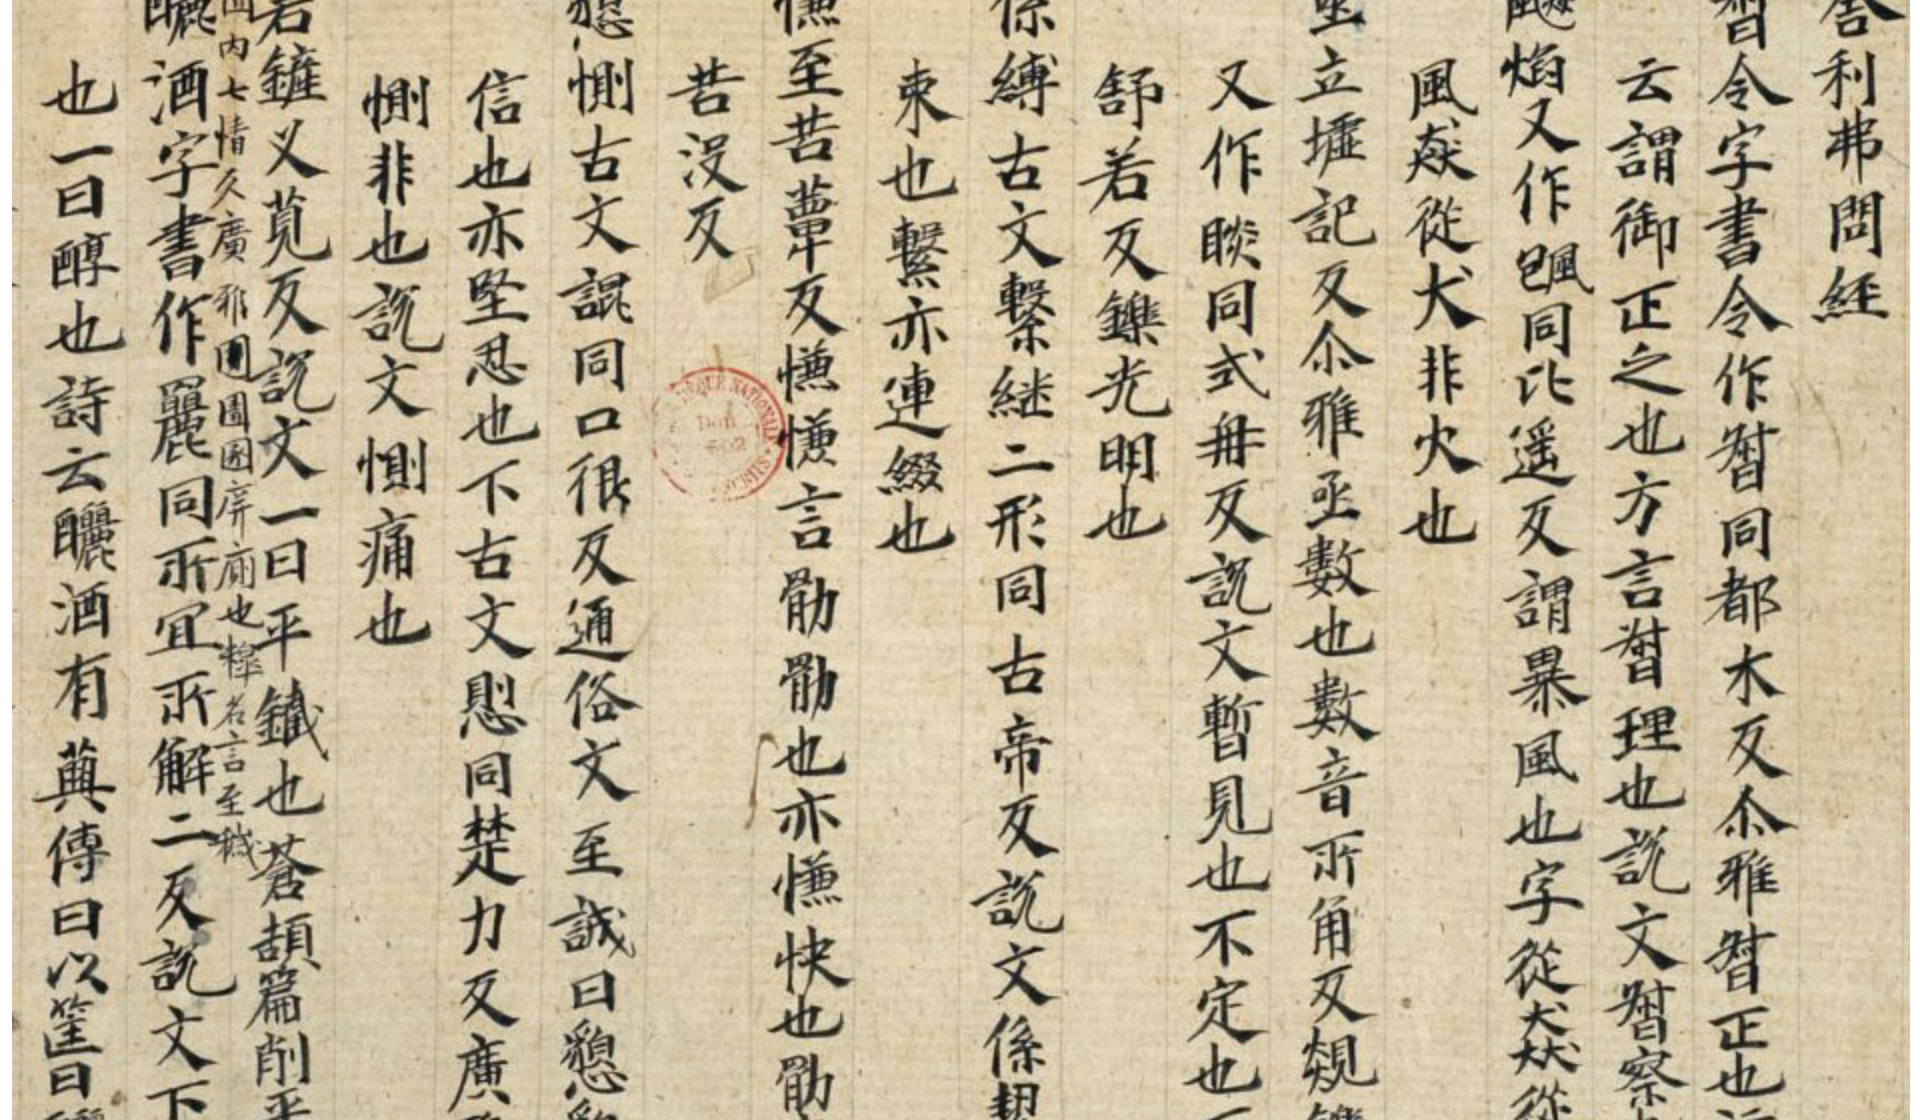 舎利弗問經
督令字書令作督同都木反尒雅督正也
云謂御正之也方言督理也說文督察
焰又作颮同比遥反謂暴風也字從猋從
風猋從犬非火也
亟立墟記反尒雅亟數也數音所角反覢鑠
又作睒同式冉反說文暫見也不定也
舒若反鑠光明也
係縛古文繫継二形同古帝反說文係
束也繫亦連綴也
慊至苦蕈反慊慊言勤勤也亦慊快也勤
苦沒反
懇惻古文詪同口很反通俗文至誠曰懇
信也亦堅忍也下古文㥽同楚力反廣
惻非也說文惻痛也
若鏟义莧反說文一曰平鐵也蒼頡篇削平
内七情久廣邪圊圂圂屏廁也糂名言至穢
釃酒字書作麗同所宜所解二反說文下
也一曰醇也詩云釃酒有藇傳曰以筐曰